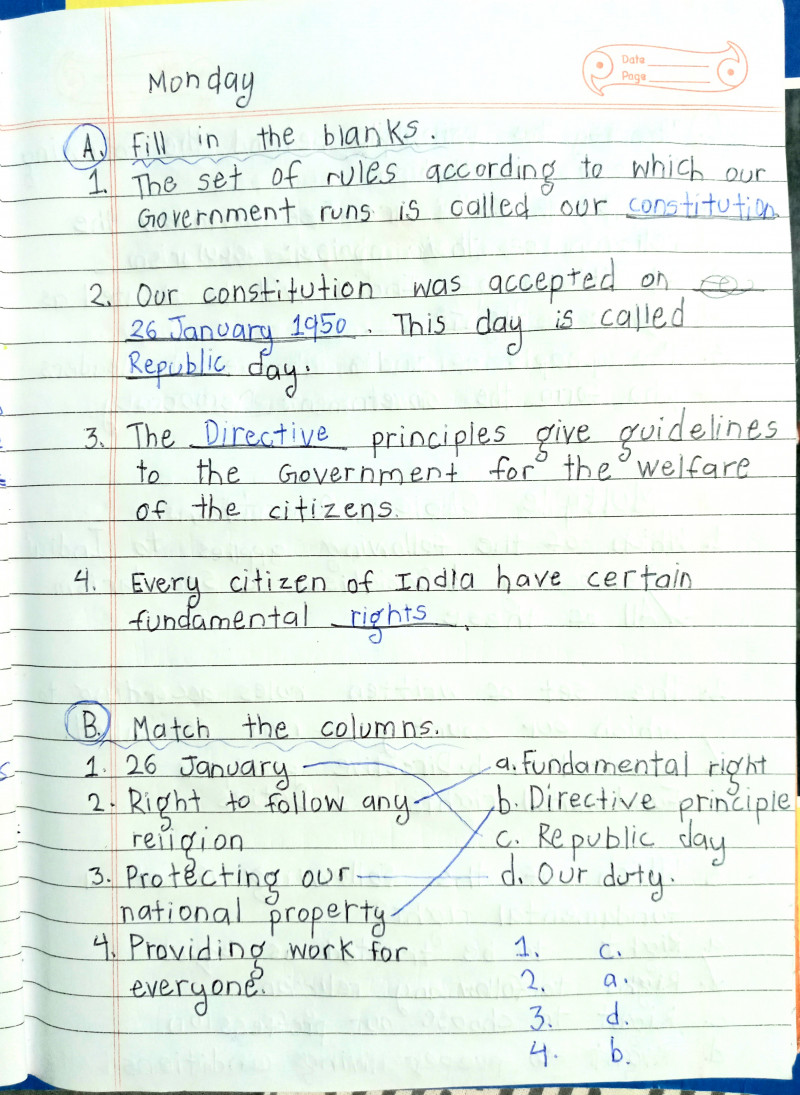 Date
Page
Monday
A. Fill in the blanks.
1. The set of rules according to which our
Government runs is called our constitution
2. Our constitution was accepted on
26 January 1950. This day is called
Republic day.
3. The Directive principles give guidelines
to the Government for the welfare
of the citizens.
4. Every citizen of India have certain
fundamental rights.
B. Match the columns.
1. 26 January a. Fundamental right
2. Right to follow any b. Directive principle
religion c. Republic day
3. Protecting our d. Our duty.
national property
4. Providing work for 1. c.
everyone. 2. a.
3. d.
4. b.